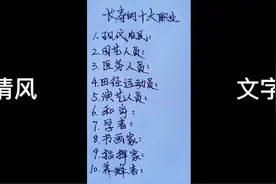 长寿的十大职业
1.现代农民:
2.园艺人员:
3.医务人员:
4.田径运动员:
5.演艺人员:
6.和尚:
7.学者:
8.书画家:
9.指挥家:
10.养蜂者:
清风
文字